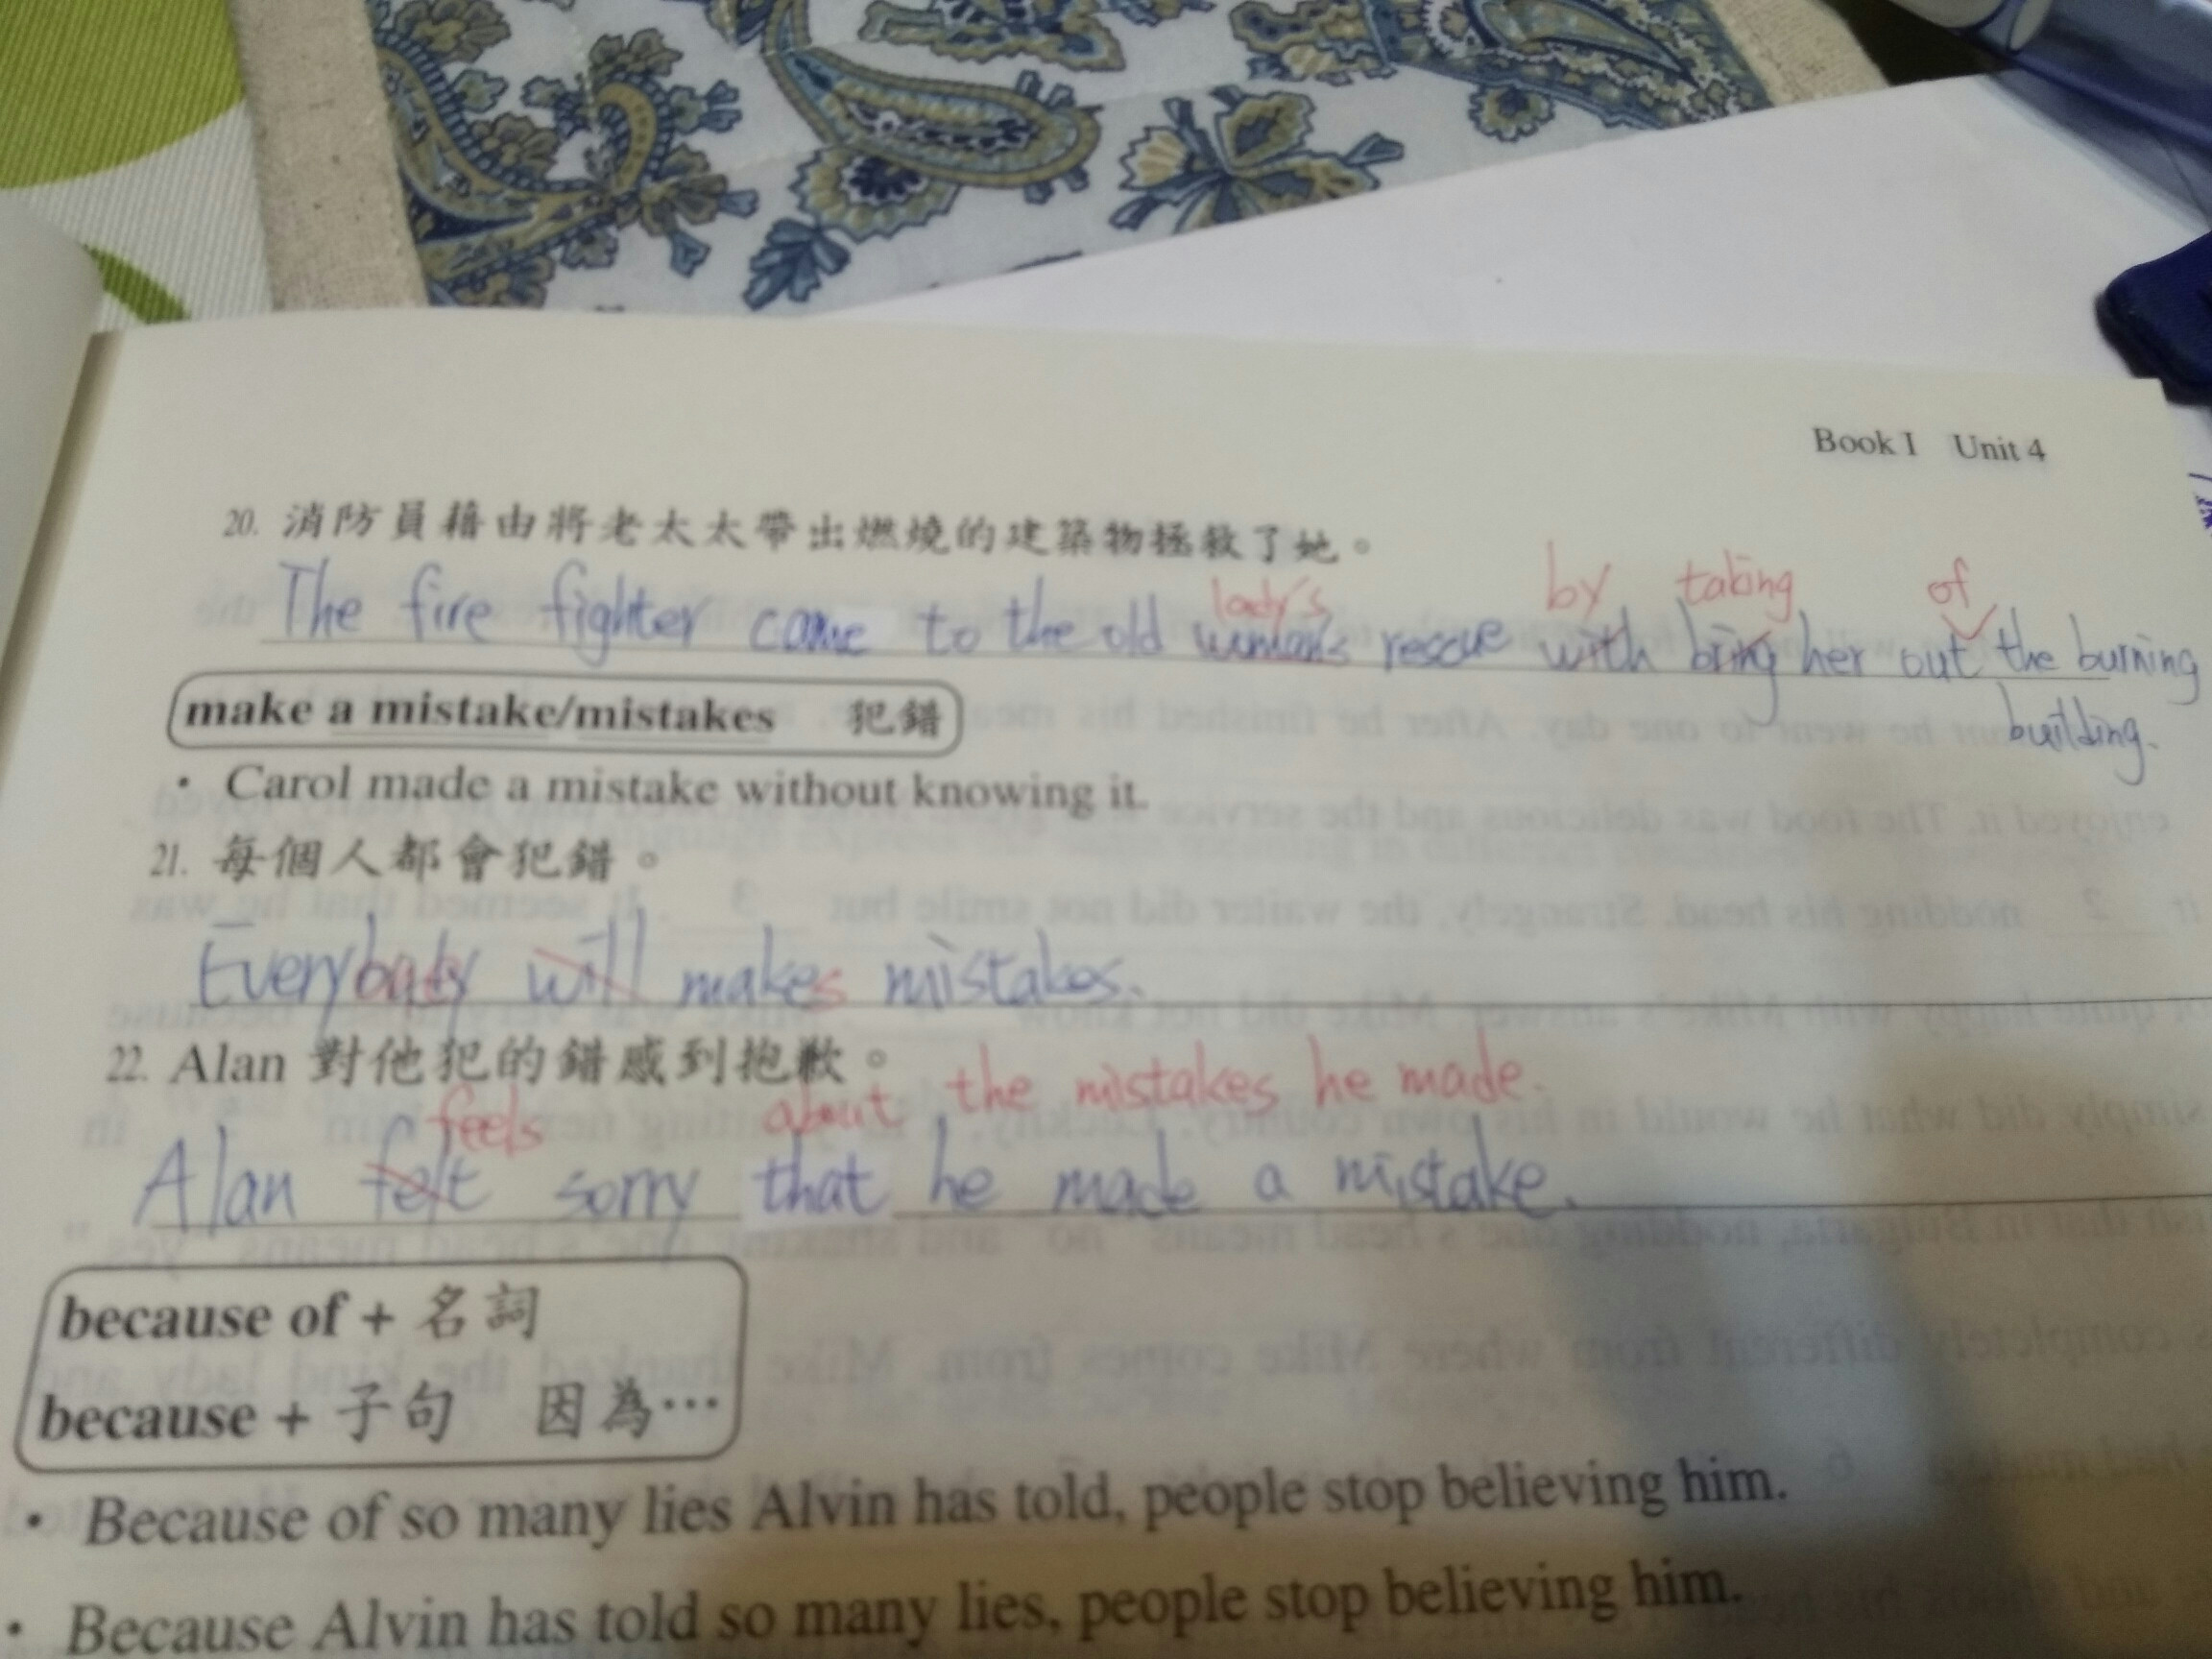 Book I Unit 4
20. 消防員藉由將老太太帶出燃燒的建築物拯救了她。
lady's by taking of
The fire fighter came to the old woman's rescue with bring her out the burning
building.
make a mistake/mistakes 犯錯
• Carol made a mistake without knowing it.
21. 每個人都會犯錯。
Everybody will makes mistakes.
22. Alan 對他犯的錯感到抱歉。
feels about the mistakes he made.
Alan felt sorry that he made a mistake.
because of + 名詞
because + 子句 因為…
• Because of so many lies Alvin has told, people stop believing him.
• Because Alvin has told so many lies, people stop believing him.